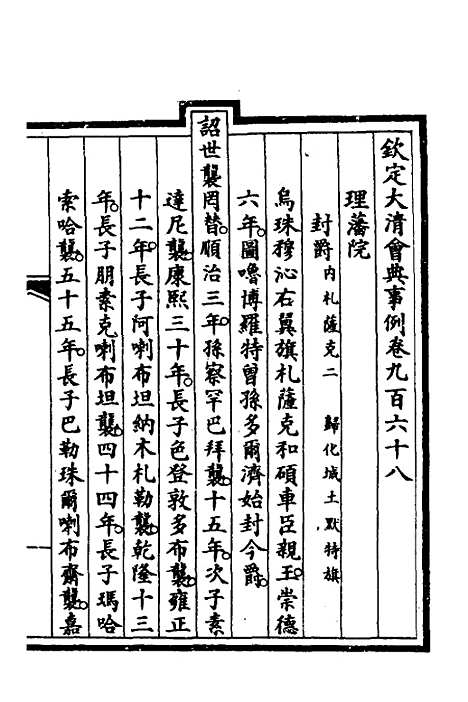 欽定大清會典事例卷九百六十八
理藩院
封爵 內札薩克二 歸化城土默特旗
烏珠穆沁右翼旗札薩克和碩車臣親王。崇德
六年。圖嚕博羅特曾孫多爾濟始封今爵。
詔世襲罔替。順治三年。孫察罕巴拜襲。十五年。次子素
達尼襲。康熙三十年。長子色登敦多布襲。雍正
十二年。長子阿喇布坦納木札勒襲。乾隆十三
年。長子朋素克喇布坦襲。四十四年。長子瑪哈
索哈襲。五十五年。長子巴勒珠爾喇布齋襲。嘉